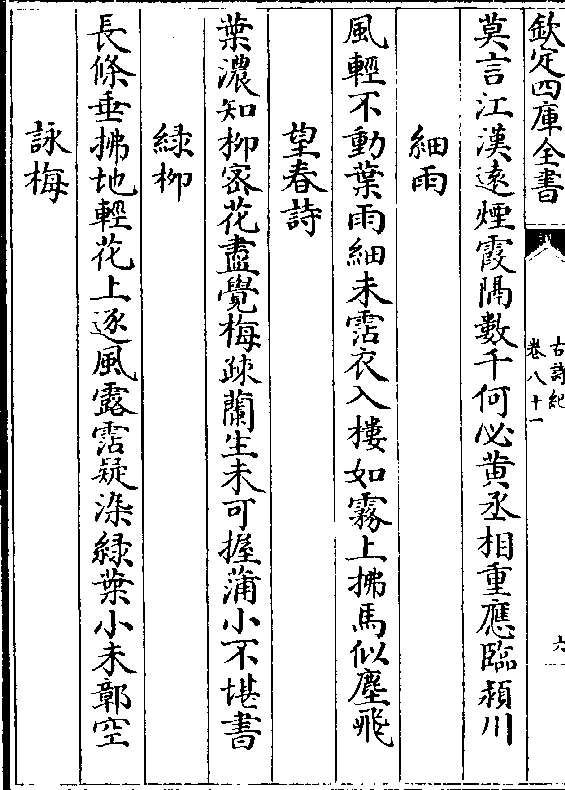 欽定四庫全書
古詩紀
卷八十一
六
莫言江漢遠煙霞隔數千何必黄丞相重應臨潁川
細雨
風輕不動葉雨細未霑衣入樓如霧上拂馬似塵飛
望春詩
葉濃知柳宻花盡覺梅疎蘭生未可握蒲小不堪書
緑柳
長條垂拂地輕花上逐風露霑疑染緑葉小未鄣空
詠梅